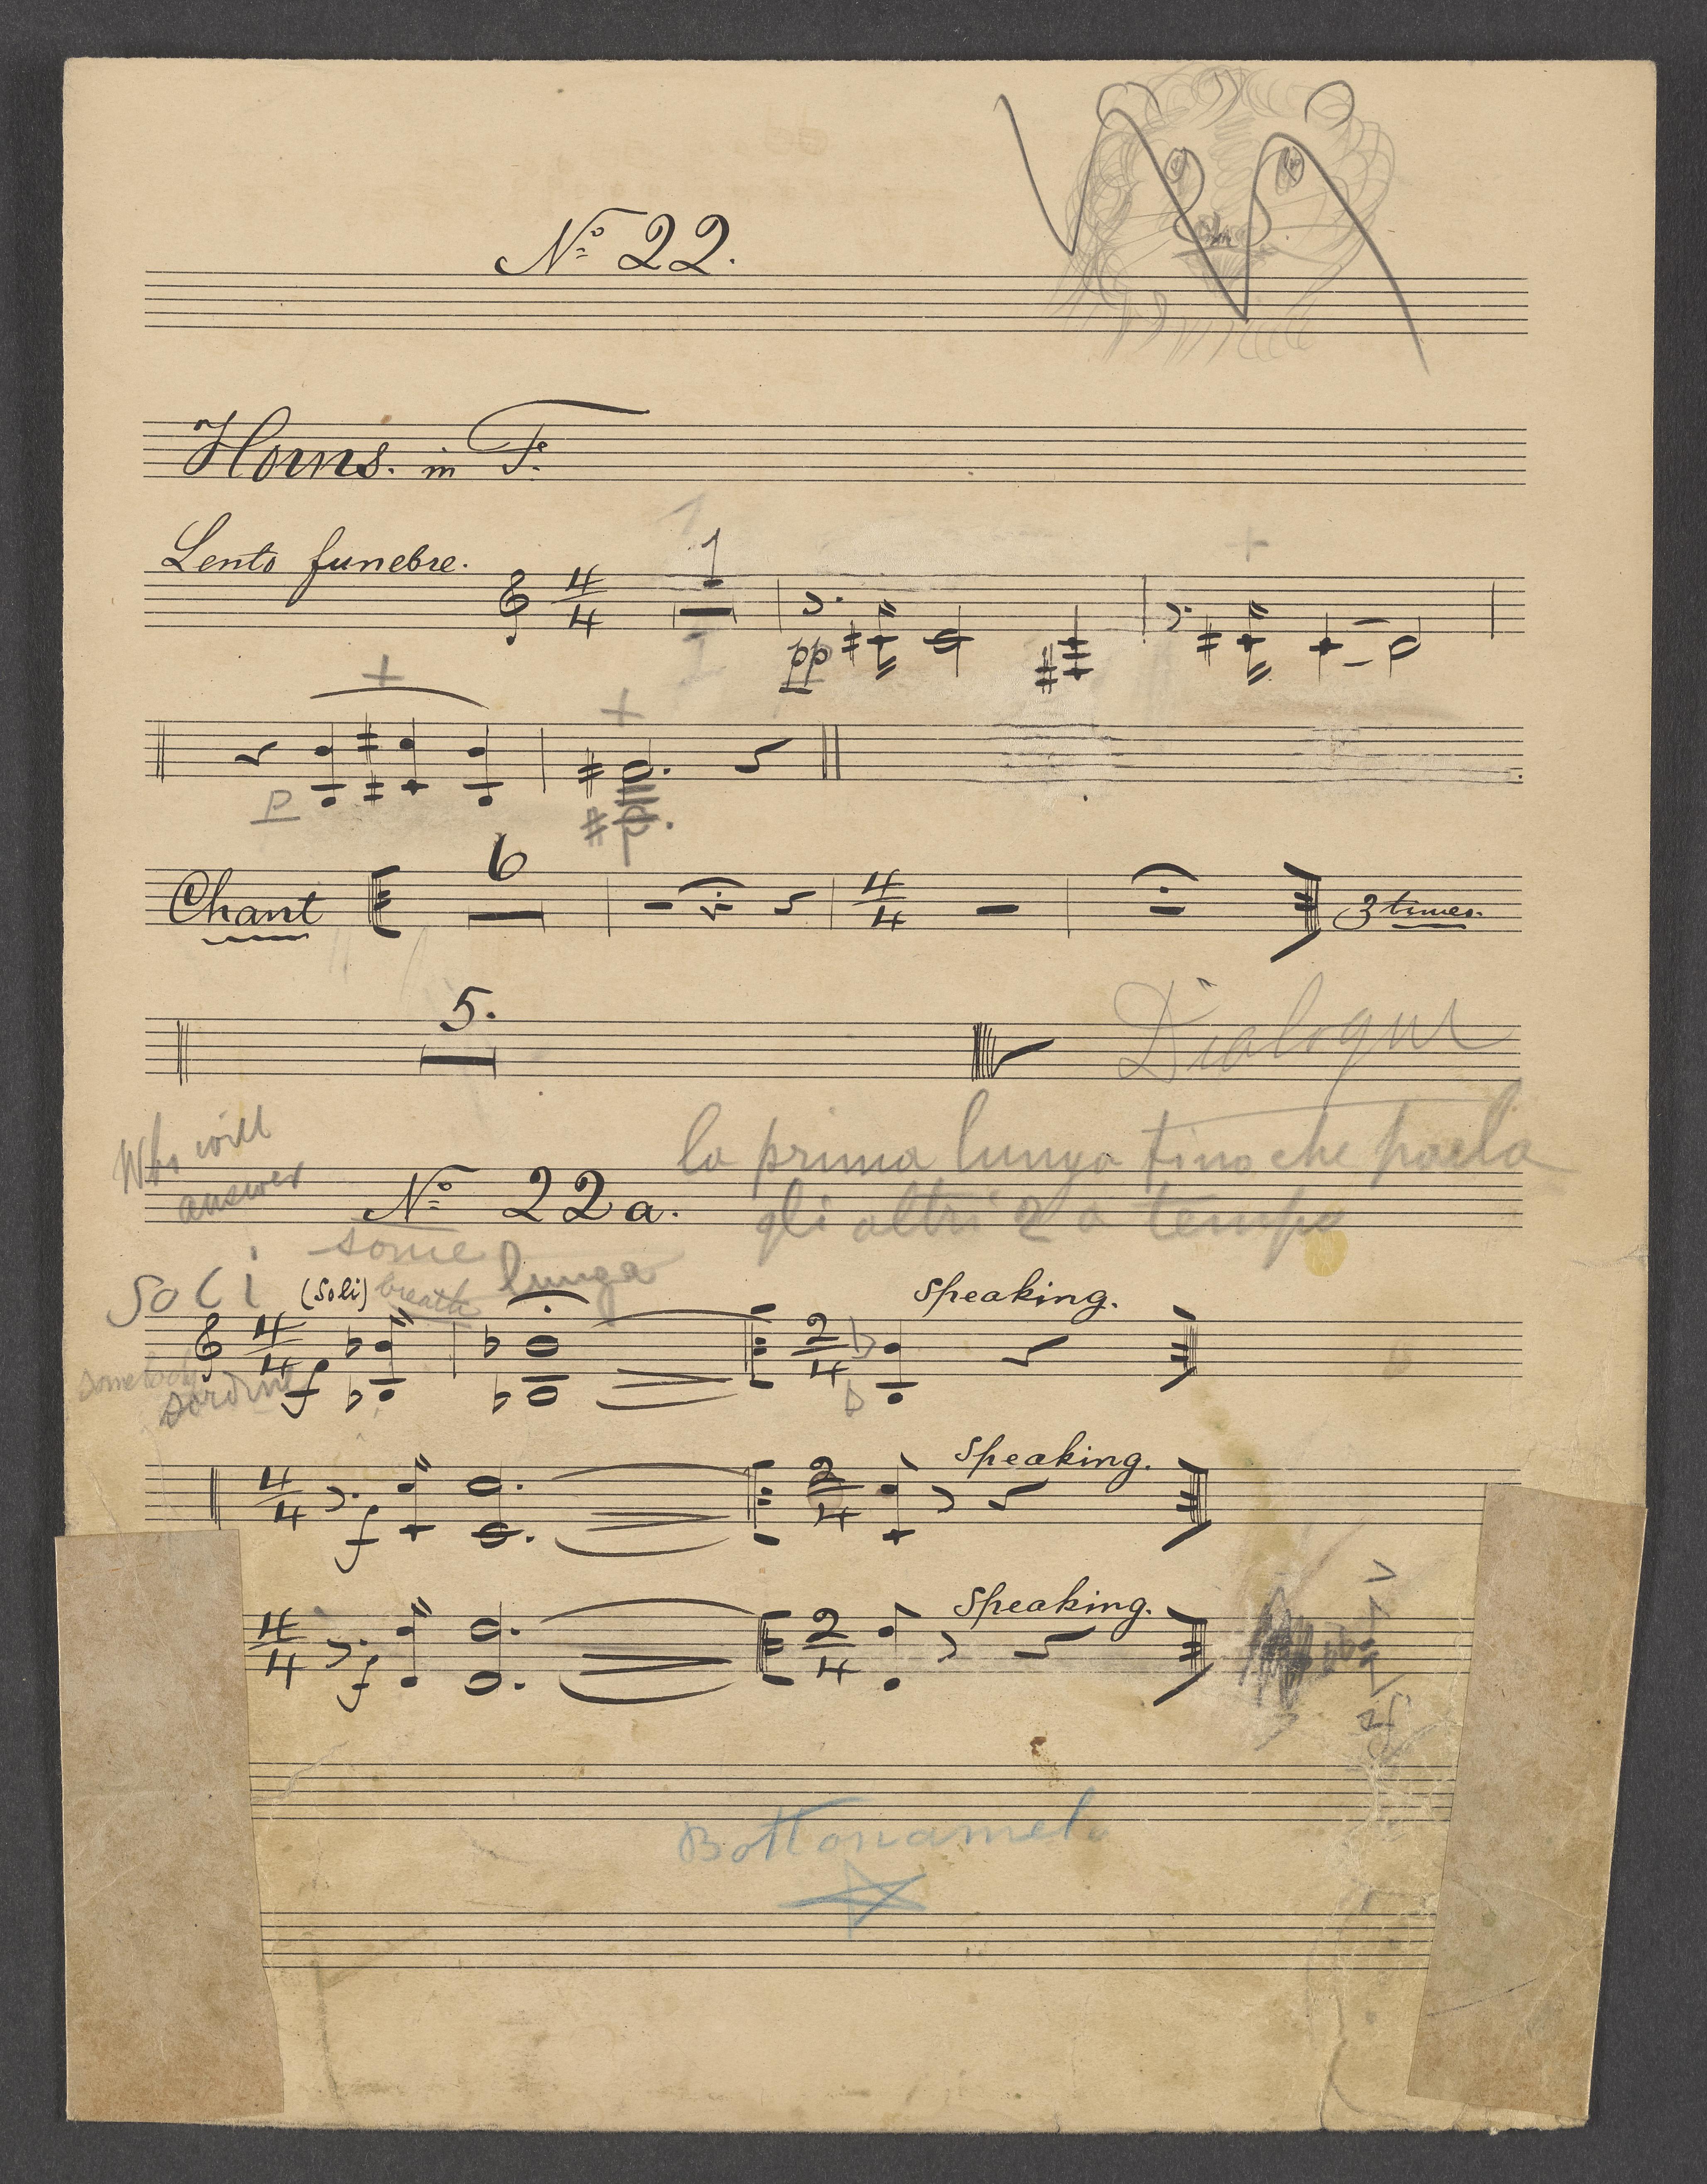 Nº 22.
Horns. in F.
Lento funebre.
4/4 1
1
pp
p
Chant 6 4/4 3 times.
5. Dialogue
Who will
answer
la prima lunga fino che parla
Nº 22a.
gli altri 2 a tempo
some
breath lunga
Soli (Soli) Speaking.
4/4 f 2/4
somebody
sordine
Speaking.
4/4 f 2/4
Speaking.
4/4 f 2/4
sf